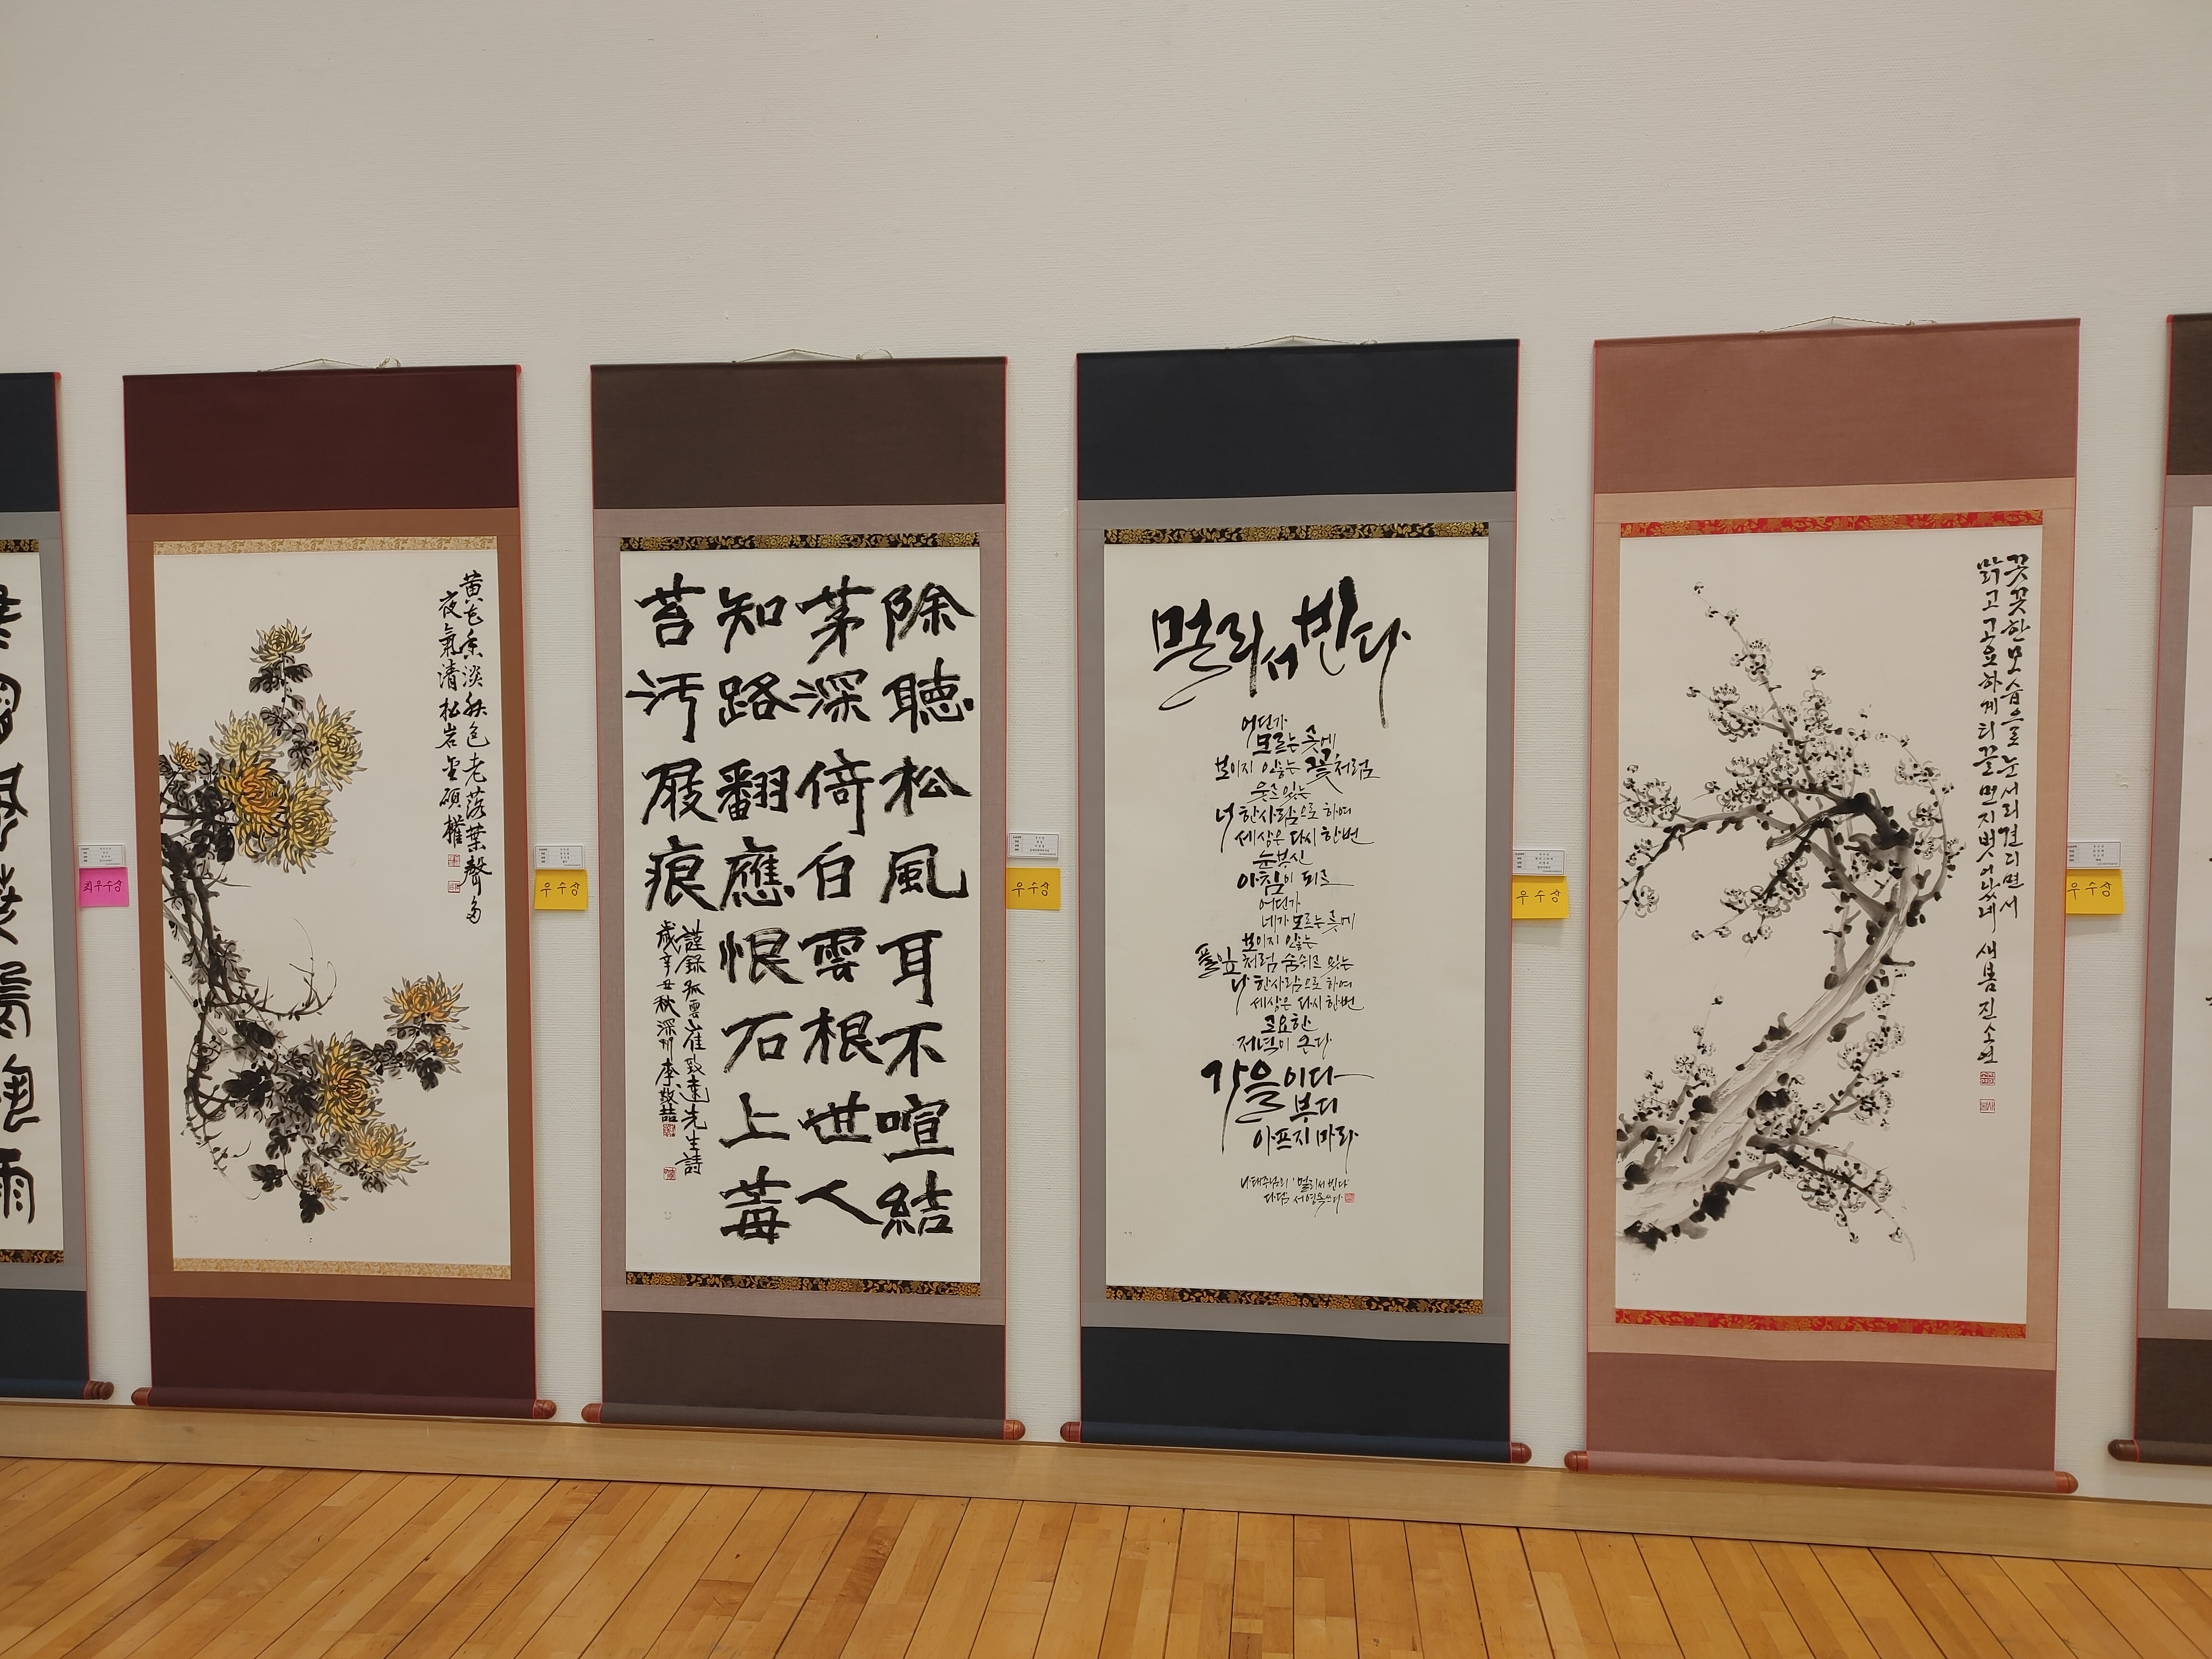 최우수상
黃花香淡秋色老落葉聲多
夜氣清 松岩
우수상
除聽松風耳不喧結
茅深倚白雲根世人
知路翻應恨石上莓
苔汚屐痕
謹錄孤雲崔致遠先生詩
歲辛丑秋
우수상
멀리서 빈다
어딘가
모르는 곳에
보이지 않는 꽃처럼
웃고 있는
너 한사람으로 하여
세상은 다시 한번
눈부신
아침이 되고
어딘가
네가 모르는 곳에
보이지 않는
풀잎처럼 숨쉬고 있는
나 한사람으로 하여
세상은 다시 한번
고요한
저녁이 온다
가을이다
부디
아프지 마라
나태주님의 '멀리서 빈다'
우수상
꼿꼿한 모습으로 눈서리 견디면서
맑고 고요하게 티끌 먼지 벗어났네 새봄 진소연
우수상